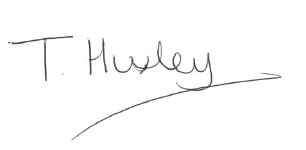 T. Huxley